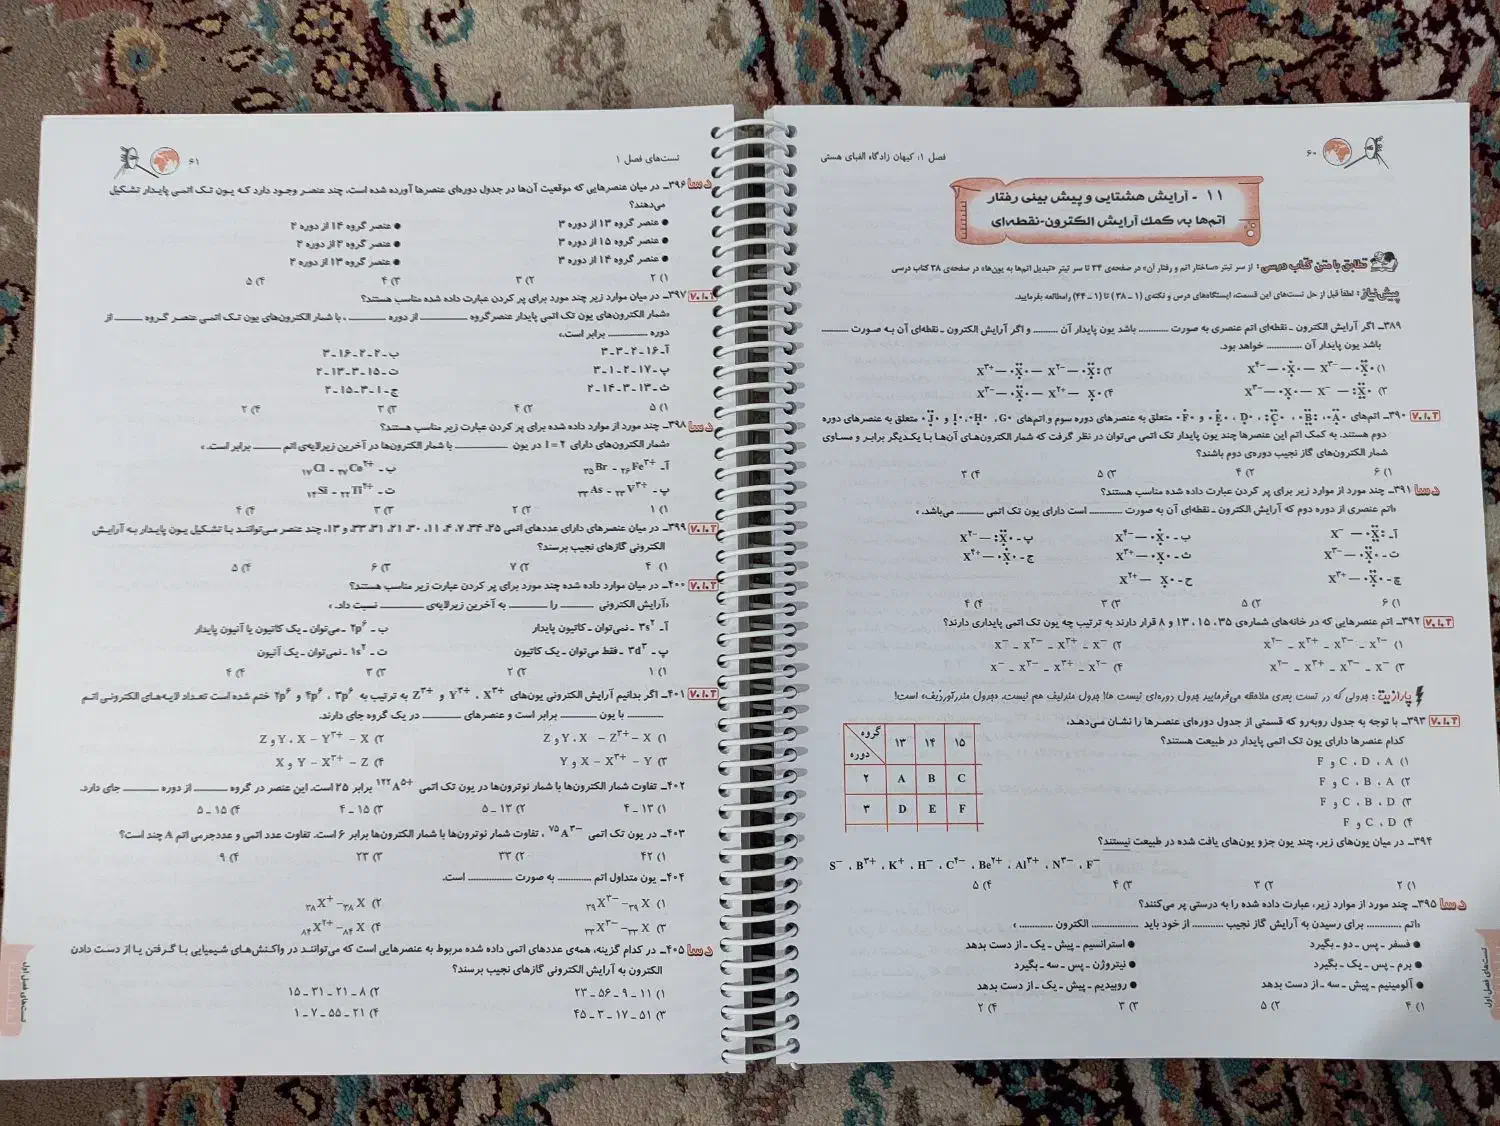 ۶۰
فصل ۱: کیهان زادگاه الفبای هستی
۱۱ - آرایش هشتایی و پیش بینی رفتار
اتم‌ها به کمک آرایش الکترون-نقطه‌ای
تطابق با متن کتاب درسی : از سر تیتر «ساختار اتم و رفتار آن» در صفحه‌ی ۳۴ تا سر تیتر «تبدیل اتم‌ها به یون‌ها» در صفحه‌ی ۳۸ کتاب درسی
پیش‌نیاز : لطفاً قبل از حل تست‌های این قسمت، ایستگاه‌های درس و نکته‌ی (۱ ـ ۳۸) تا (۱ ـ ۴۴) را مطالعه بفرمایید.
۳۸۹ـ اگر آرایش الکترون ـ نقطه‌ای اتم عنصری به صورت ............ باشد یون پایدار آن .......... و اگر آرایش الکترون ـ نقطه‌ای آن به صورت ............
باشد یون پایدار آن .............. خواهد بود.
۷.۱.۲ ۳۹۰ـ اتم‌های
متعلق به عنصرهای دوره سوم و اتم‌های
متعلق به عنصرهای دوره
دوم هستند. به کمک اتم این عنصرها چند یون پایدار تک اتمی می‌توان در نظر گرفت که شمار الکترون‌های آن‌ها با یکدیگر برابر و مساوی
شمار الکترون‌های گاز نجیب دوره‌ی دوم باشند؟
۱) ۶ ۲) ۴ ۳) ۵ ۴) ۳
دسا ۳۹۱ـ چند مورد از موارد زیر برای پر کردن عبارت داده شده مناسب هستند؟
«اتم عنصری از دوره دوم که آرایش الکترون ـ نقطه‌ای آن به صورت ............ است دارای یون تک اتمی .......... می‌باشد.»
۱) ۶ ۲) ۵ ۳) ۳ ۴) ۴
۷.۱.۲ ۳۹۲ـ اتم عنصرهایی که در خانه‌های شماره‌ی ۳۵، ۱۵، ۱۳ و ۸ قرار دارند به ترتیب چه یون تک اتمی پایداری دارند؟
۱) X²⁻ ـ X³⁻ ـ X³⁺ ـ X²⁻ ۲) X⁻ ـ X³⁺ ـ X³⁻ ـ X⁻
۳) X⁻ ـ X³⁻ ـ X³⁺ ـ X²⁻ ۴) X²⁻ ـ X³⁺ ـ X³⁻ ـ X⁻
پارازیت : جدولی که در تست بعدی ملاحظه می‌فرمایید جدول دوره‌ای نیست ها! جدول مندلیف هم نیست. «جدول مندرآوردیف» است!
۷.۱.۲ ۳۹۳ـ با توجه به جدول روبه‌رو که قسمتی از جدول دوره‌ای عنصرها را نشان می‌دهد،
کدام عنصرها دارای یون تک اتمی پایدار در طبیعت هستند؟
۱) A ، D ، C و F
۲) A ، B ، C و F
۳) D ، B ، C و F
۴) D ، C و F
گروه ۱۳ ۱۴ ۱۵
دوره
۲ A B C
۳ D E F
۳۹۴ـ در میان یون‌های زیر، چند یون جزو یون‌های یافت شده در طبیعت نیستند؟
S⁻ ، B³⁺ ، K⁺ ، H⁻ ، C⁴⁻ ، Be²⁺ ، Al³⁺ ، N³⁻ ، F⁻
۱) ۲ ۲) ۳ ۳) ۴ ۴) ۵
دسا ۳۹۵ـ چند مورد از موارد زیر، عبارت داده شده را به درستی پر می‌کنند؟
«اتم ............ برای رسیدن به آرایش گاز نجیب ........... از خود باید ............... الکترون ............ .»
● فسفر ـ پس ـ دو ـ بگیرد ● استرانسیم ـ پیش ـ یک ـ از دست بدهد
● برم ـ پس ـ یک ـ بگیرد ● نیتروژن ـ پس ـ سه ـ بگیرد
● آلومینیم ـ پیش ـ سه ـ از دست بدهد ● روبیدیم ـ پیش ـ یک ـ از دست بدهد
۱) ۴ ۲) ۵ ۳) ۳ ۴) ۲
تست‌های فصل اول
تست‌های فصل ۱
۶۱
دسا ۳۹۶ـ در میان عنصرهایی که موقعیت آن‌ها در جدول دوره‌ای عنصرها آورده شده است، چند عنصر وجود دارد که یون تک اتمی پایدار تشکیل
می‌دهند؟
● عنصر گروه ۱۳ از دوره ۳ ● عنصر گروه ۱۴ از دوره ۲
● عنصر گروه ۱۵ از دوره ۳ ● عنصر گروه ۲ از دوره ۲
● عنصر گروه ۱۴ از دوره ۳ ● عنصر گروه ۱۳ از دوره ۲
۱) ۲ ۲) ۳ ۳) ۴ ۴) ۵
۷.۱.۲ ۳۹۷ـ در میان موارد زیر چند مورد برای پر کردن عبارت داده شده مناسب هستند؟
«شمار الکترون‌های یون تک اتمی پایدار عنصر گروه ............ از دوره .........، با شمار الکترون‌های یون تک اتمی عنصر گروه ......... از
دوره ............ برابر است.»
آـ ۱۶ـ۲ـ۳ـ۳ ب ـ ۲ـ۲ـ۱۶ـ۳
پ ـ ۱۷ـ۲ـ۱ـ۳ ت ـ ۱۵ـ۳ـ۱۳ـ۲
ث ـ ۱۳ـ۳ـ۱۴ـ۲ ج ـ ۱ـ۳ـ۱۵ـ۲
۱) ۵ ۲) ۴ ۳) ۳ ۴) ۲
دسا ۳۹۸ـ چند مورد از موارد داده شده برای پر کردن عبارت زیر مناسب هستند؟
«شمار الکترون‌های دارای l = ۲ در یون ............ با شمار الکترون‌ها در آخرین زیرلایه‌ی اتم ............ برابر است.»
آـ ₂₆Fe³⁺ ـ ₃₅Br ب ـ ₂₇Co²⁺ ـ ₁₇Cl
پ ـ ₂₃V³⁺ ـ ₃₃As ت ـ ₂₂Ti²⁺ ـ ₁₄Si
۱) ۱ ۲) ۲ ۳) ۳ ۴) ۴
۷.۱.۲ ۳۹۹ـ در میان عنصرهای دارای عددهای اتمی ۲۵، ۳۴، ۷، ۴، ۱۱، ۳۰، ۲۱، ۳۱، ۳۳، و ۱۳، چند عنصر می‌توانند با تشکیل یون پایدار به آرایش
الکترونی گازهای نجیب برسند؟
۱) ۴ ۲) ۷ ۳) ۶ ۴) ۵
۷.۱.۲ ۴۰۰ـ در میان موارد داده شده چند مورد برای پر کردن عبارت زیر مناسب هستند؟
«آرایش الکترونی ............ را ............ به آخرین زیرلایه‌ی ............ نسبت داد.»
آـ ۳s² ـ نمی‌توان ـ کاتیون پایدار ب ـ ۲p⁶ ـ می‌توان ـ یک کاتیون یا آنیون پایدار
پ ـ ۳d³ ـ فقط می‌توان ـ یک کاتیون ت ـ ۱s² ـ نمی‌توان ـ یک آنیون
۱) ۱ ۲) ۲ ۳) ۳ ۴) ۴
۷.۱.۲ ۴۰۱ـ اگر بدانیم آرایش الکترونی یون‌های X³⁺ ، Y³⁺ و Z³⁺ به ترتیب به ۳p⁶ ، ۴p⁶ و ۲p⁶ ختم شده است تعداد لایه‌های الکترونی اتم
............ با یون ............ برابر است و عنصرهای ............ در یک گروه جای دارند.
۱) Z³⁺ ـ X ـ X ، Y و Z ۲) Y³⁺ ـ X ـ X ، Y و Z
۳) X³⁺ ـ Y ـ X و Y ۴) X³⁺ ـ Z ـ Y و X
۴۰۲ـ تفاوت شمار الکترون‌ها با شمار نوترون‌ها در یون تک اتمی ¹²²A⁵⁺ برابر ۲۵ است. این عنصر در گروه ......... از دوره ......... جای دارد.
۱) ۱۳ ـ ۴ ۲) ۱۳ ـ ۵ ۳) ۱۵ ـ ۴ ۴) ۱۵ ـ ۵
۴۰۳ـ در یون تک اتمی ⁷⁵A³⁻، تفاوت شمار نوترون‌ها با شمار الکترون‌ها برابر ۶ است. تفاوت عدد اتمی و عددجرمی اتم A چند است؟
۱) ۴۲ ۲) ۳۳ ۳) ۲۳ ۴) ۹
۴۰۴ـ یون متداول اتم ............ به صورت ............... است.
۱) ₃₉X ـ ₃₉X³⁻ ۲) ₃₈X ـ ₃₈X⁺
۳) ₃₃X ـ ₃₃X³⁻ ۴) ₈₄X ـ ₈₄X²⁺
دسا ۴۰۵ـ در کدام گزینه، همه‌ی عددهای اتمی داده شده مربوط به عنصرهایی است که می‌توانند در واکنش‌های شیمیایی با گرفتن یا از دست دادن
الکترون به آرایش الکترونی گازهای نجیب برسند؟
۱) ۱۱ ـ ۹ ـ ۵۶ ـ ۲۳ ۲) ۸ ـ ۲۱ ـ ۳۱ ـ ۱۵
۳) ۵۱ ـ ۱۷ ـ ۳ ـ ۴۵ ۴) ۲۱ ـ ۵۵ ـ ۷ ـ ۱
تست‌های فصل اول